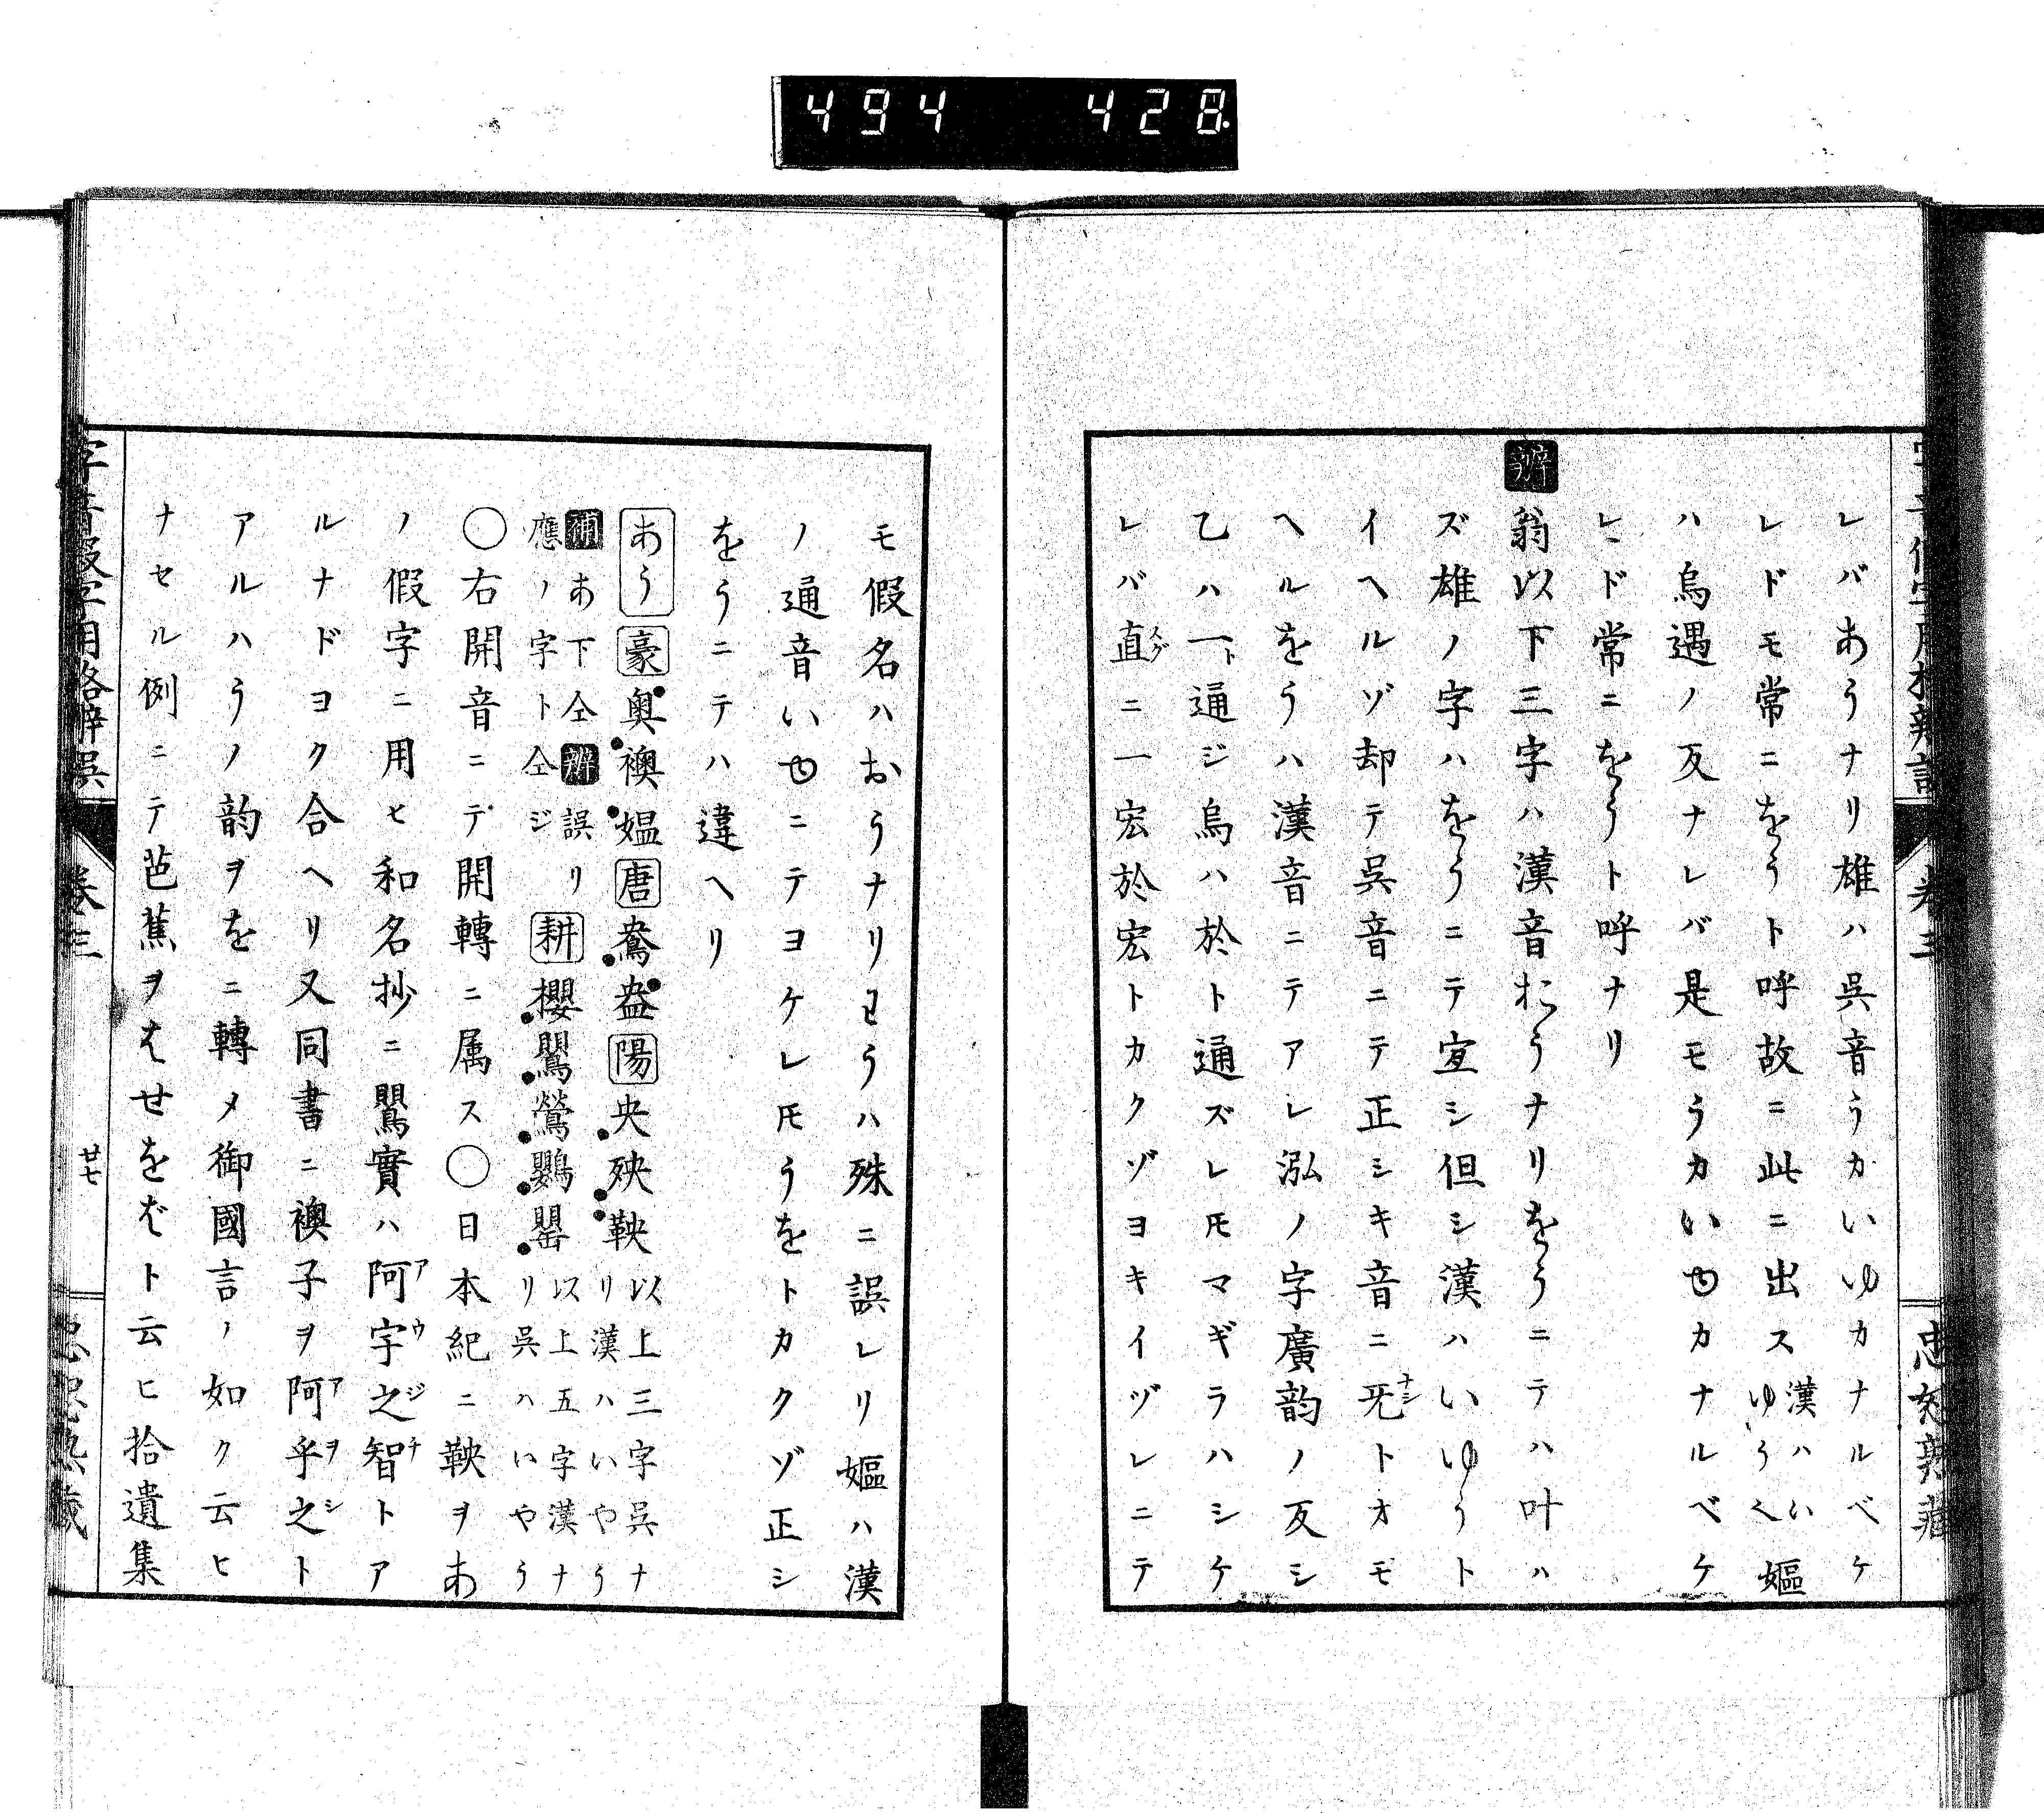 494 428
レバあうナリ雄ハ呉音うカいゆカナルベケ
レドモ常ニをうト呼故ニ此ニ出ス漢ハいゆうく嫗
ハ烏遇ノ反ナレバ是モうカいゆカナルベケ
レド常ニをうト呼ナリ
辨翁以下三字ハ漢音おうナリをうニテハ叶ハ
ズ雄ノ字ハをうニテ宜シ但シ漢ハいゆうト
イヘルゾ却テ呉音ニテ正シキ音ニ旡トオモ
ナシ
ヘルをうハ漢音ニテアレ泓ノ字廣韵ノ反シ
乙ハ一ト通ジ烏ハ於ト通ズレモマギラハシケ
レバ直ニ一宏於宏トカクゾヨキイヅレニテ
スグ
モ假名ハおうナリわうハ殊ニ誤レリ嫗ハ漢
ノ通音いゆニテヨケレモうをトカクゾ正シ
をうニテハ違ヘリ
あう 豪奥襖媼唐鴦盎陽央殃鞅以上三字呉ナリ漢ハいやう
補あ下仝辨誤リ
應ノ字ト仝ジ
耕櫻鸎鶯鸚罌以上五字漢ナリ呉ハいやう
〇右開音ニテ開轉ニ属ス〇日本紀ニ鞅ヲあ
ノ假字ニ用ヒ和名抄ニ鸎實ハ阿宇之智トア
アウジチ
ルナドヨク合ヘリ又同書ニ襖子ヲ阿乎之ト
アヲシ
アルハうノ韵ヲをニ轉メ御國言ノ如ク云ヒ
ナセル例ニテ芭蕉ヲはせをばト云ヒ拾遺集
字音假字用格辨誤 卷三 廿七